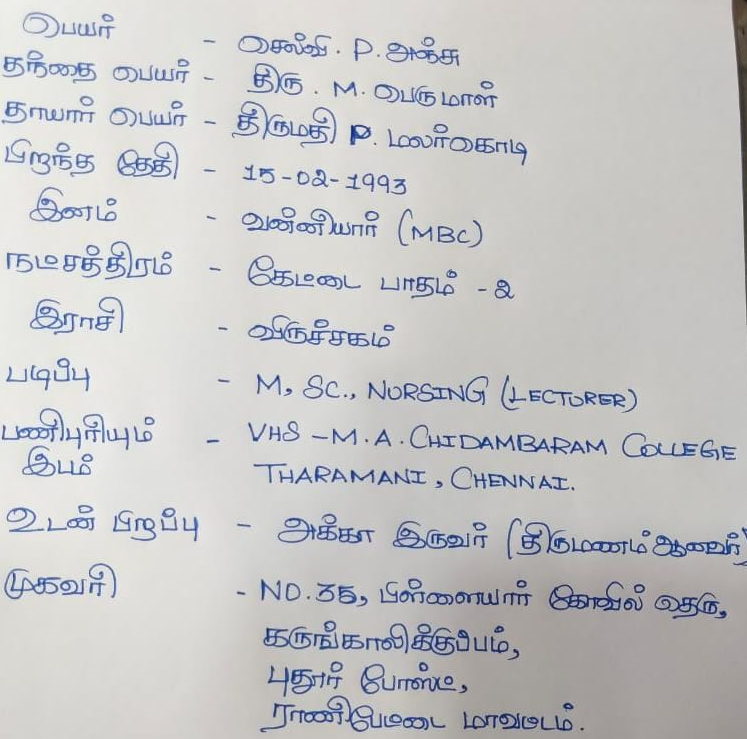 பெயர் - செல்வி. P. அஞ்சு
தந்தை பெயர் - திரு. M. பெருமாள்
தாயார் பெயர் - திருமதி P. மலர்கொடி
பிறந்த தேதி - 15-02-1993
இனம் - வன்னியார் (MBC)
நட்சத்திரம் - கேட்டை பாதம் - 2
இராசி - விருச்சகம்
படிப்பு - M, SC., NURSING (LECTURER)
பணிபுரியும் - VHS - M. A. CHIDAMBARAM COLLEGE
இடம் THARAMANI, CHENNAI.
உடன் பிறப்பு - அக்கா இருவர் (திருமணம் ஆனவர்)
முகவரி - NO. 35, பிள்ளையார் கோவில் தெரு,
கருங்காலிக்குப்பம்,
புதூர் போஸ்ட்,
ராணிபேட்டை மாவட்டம்.